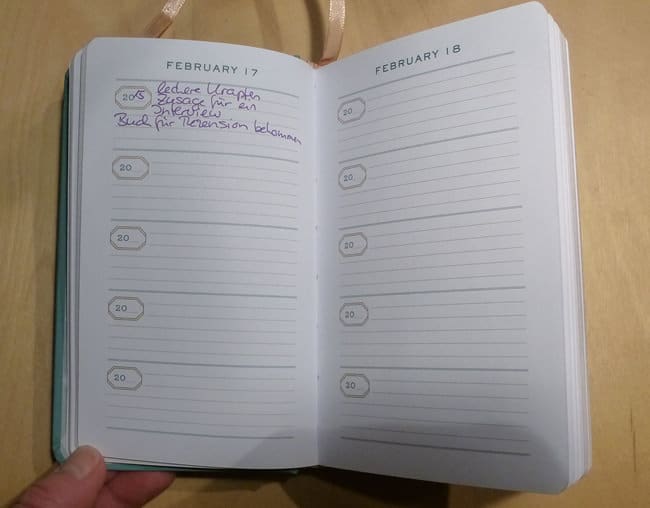 FEBRUARY 17
2015 leckere Krapfen
Zusage für ein
Interview
Buch für Rezension bekommen
20
20
20
20
FEBRUARY 18
20
20
20
20
20